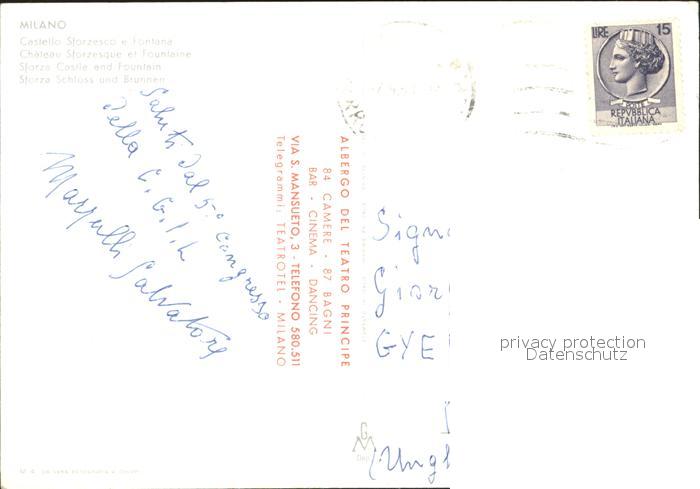 MILANO
Castello Sforzesco e Fontana
Château Sforzesque et Fountaine
Sforza Castle and Fountain
Sforza Schloss und Brunnen
LIRE 15
POSTE
REPVBBLICA
ITALIANA
Saluti dal 5° Congresso
della C.G.I.L
Marsulli Salvatore
ALBERGO DEL TEATRO PRINCIPE
84 CAMERE - 87 BAGNI
BAR - CINEMA - DANCING
VIA S. MANSUETO, 3 - TELEFONO 580.511
Telegrammi: TEATROTEL - MILANO
Sign
Gior
GYE
(Ungh
privacy protection
Datenschutz
G
M